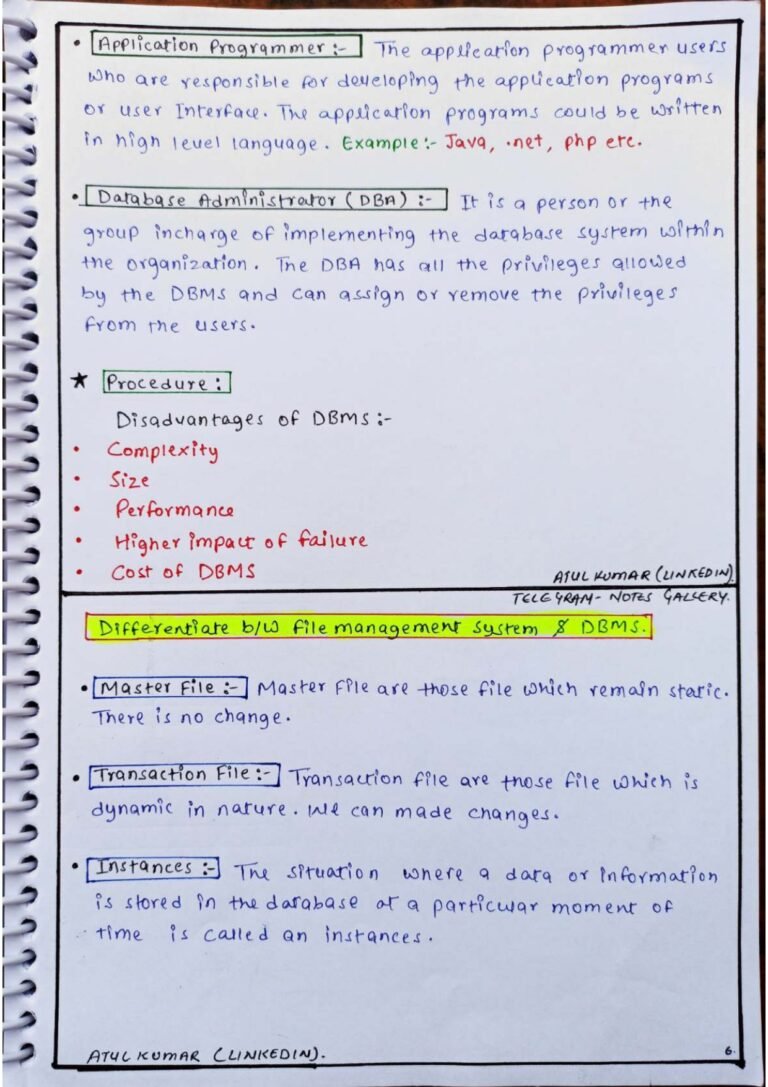 • Application Programmer :- The application programmer users
who are responsible for developing the application programs
or user Interface. The application programs could be written
in high level language. Example :- Java, .net, php etc.
• Database Administrator (DBA) :- It is a person or the
group incharge of implementing the database system within
the organization. The DBA has all the privileges allowed
by the DBMS and can assign or remove the privileges
from the users.
★ Procedure :
Disadvantages of DBMS :-
• Complexity
• Size
• Performance
• Higher impact of failure
• Cost of DBMS
ATUL KUMAR (LINKEDIN)
TELEGRAM - NOTES GALLERY.
Differentiate b/w file management system & DBMS.
• Master File :- Master File are those file which remain static.
There is no change.
• Transaction File :- Transaction file are those file which is
dynamic in nature. We can made changes.
• Instances :- The situation where a data or information
is stored in the database at a particular moment of
time is called an instances.
ATUL KUMAR (LINKEDIN).
6.